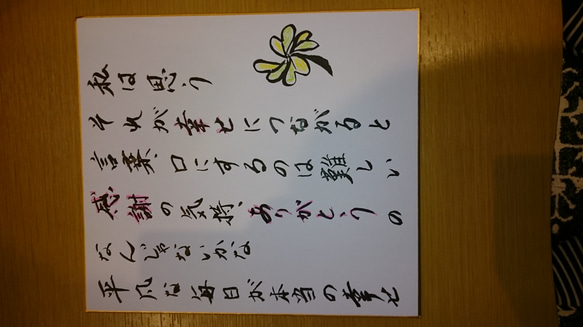 平凡な毎日が本当の幸せ
なんじゃないかな
感謝の気持、ありがとうの
言葉口にするのは難しい
それが幸せにつながると
私は思う